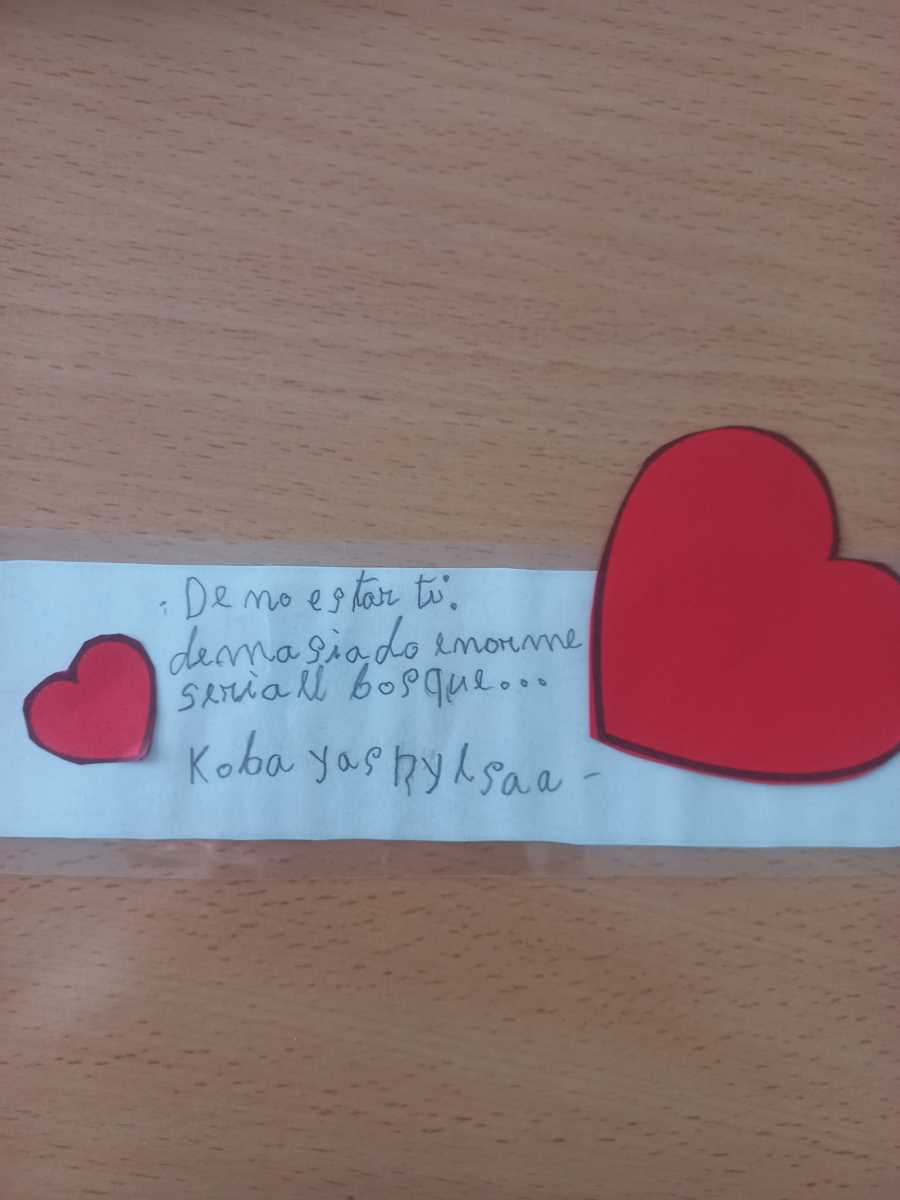 . De no estar tú.
demasiado enorme
seria el bosque...
Kobayashy Isaa -